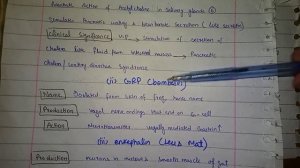 Anabolic Action of Acetylcholine in Salivary glands
Stimulates Pancreatic water & bicarbonate secretion (like secretin)
Clinical Significance VIP → Stimulation of secretion of
cholera like fluid from intestinal mucosa → Pancreatic
cholera / watery diarrhea Syndrome
(ii) GRP (bombesin)
Name → Isolated from Skin of frog, hence name
Production → Vagal nerve endings that end on G-cell
Action → Neurotransmitter vagally mediated Gastrin ↑
(iii) enkephalin (
Production → neurons in mucosa & smooth muscle of gut